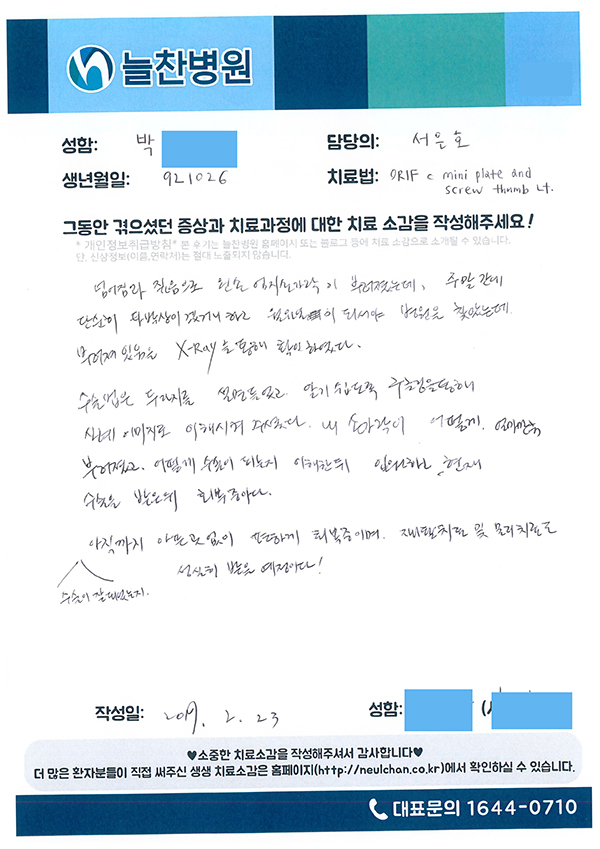 늘찬병원
성함: 박
담당의: 서은호
생년월일: 921026
치료법: ORIF c mini plate and
screw thumb Lt.
그동안 겪으셨던 증상과 치료과정에 대한 치료 소감을 작성해주세요!
* 개인정보취급방침* 본 후기는 늘찬병원 홈페이지 또는 블로그 등에 치료 소감으로 소개될 수 있습니다.
단, 신상정보(이름,연락처)는 절대 노출되지 않습니다.
넘어짐과 찢음으로 왼손 엄지손가락이 부러졌는데, 주말 간에
단순히 타박상이 겠거니 하고 월요일이 되서야 병원을 찾았는데
부러져 있음을 X-Ray를 통해 확인하였다.
수술법은 두가지를 설명들었고. 알기 쉽도록 구글링을 통해
실례 이미지로 이해시켜 주시었다. 내 손가락이 어떻게, 얼마만큼
부러졌고. 어떻게 수술이 되는지 이해한뒤 입원하고 현재
수술을 받은뒤 회복중이다.
아직까지 아픈 곳 없이 편하게 회복중이며. 재활치료 및 물리치료도
성실히 받을 예정이다!
수술이 잘 되었는지.
작성일: 2019. 2. 23
성함:
♥소중한 치료소감을 작성해주셔서 감사합니다♥
더 많은 환자분들이 직접 써주신 생생 치료소감은 홈페이지(http://neulchan.co.kr)에서 확인하실 수 있습니다.
대표문의 1644-0710